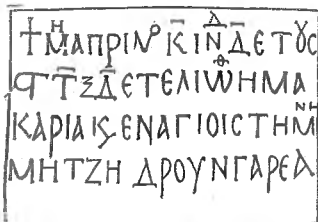 † ΜΗ ΑΠΡΙΛΙΟ Κ̅ ΙΝΔ Δ̅ ΕΤȢС
ϚΤ̅ΞΔ̅ ΕΤΕΛΙΩΘΗ ΜΑ
ΚΑΡΙΑ ΙϚ ΕΝ ΑΓΙΟΙС ΤΗ ΜΝΗ
ΜΗ ΤΖΗ ΔΡΟΥΝΓΑΡΕΑ